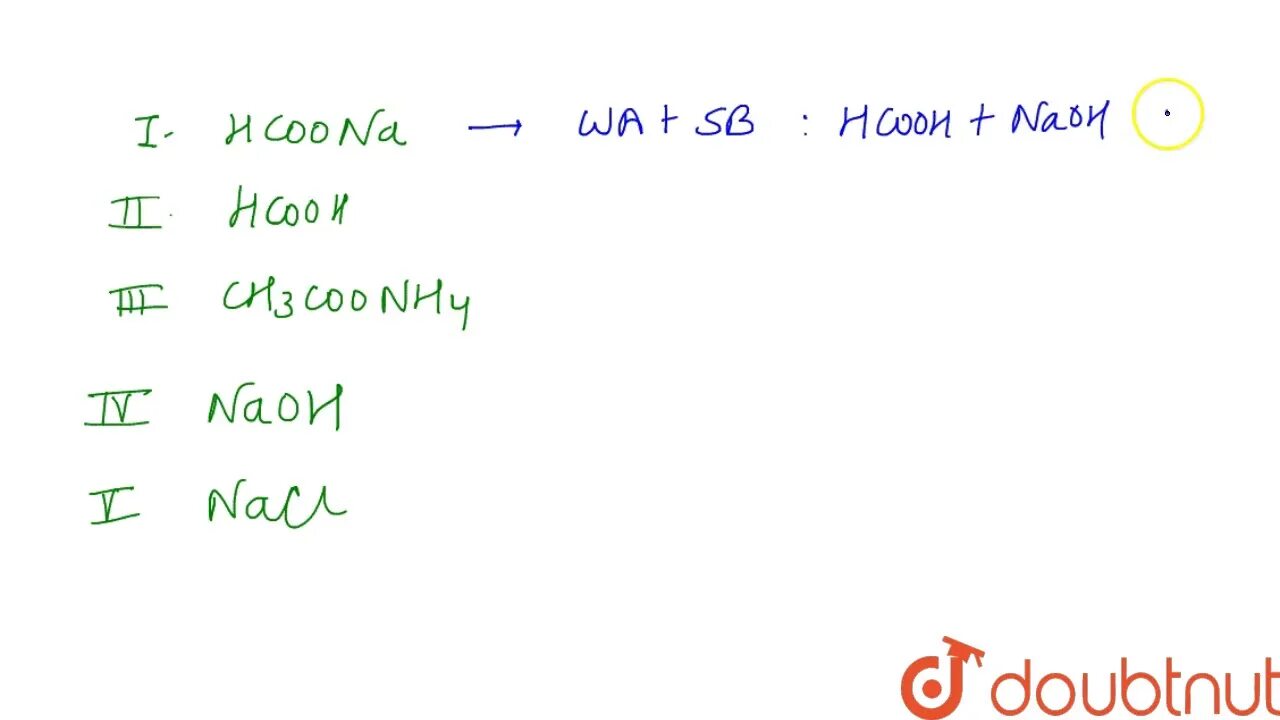 I. HCOONa → WA + SB : HCOOH + NaOH
II. HCOOH
III CH3COONH4
IV NaOH
V NaCl
doubtnut